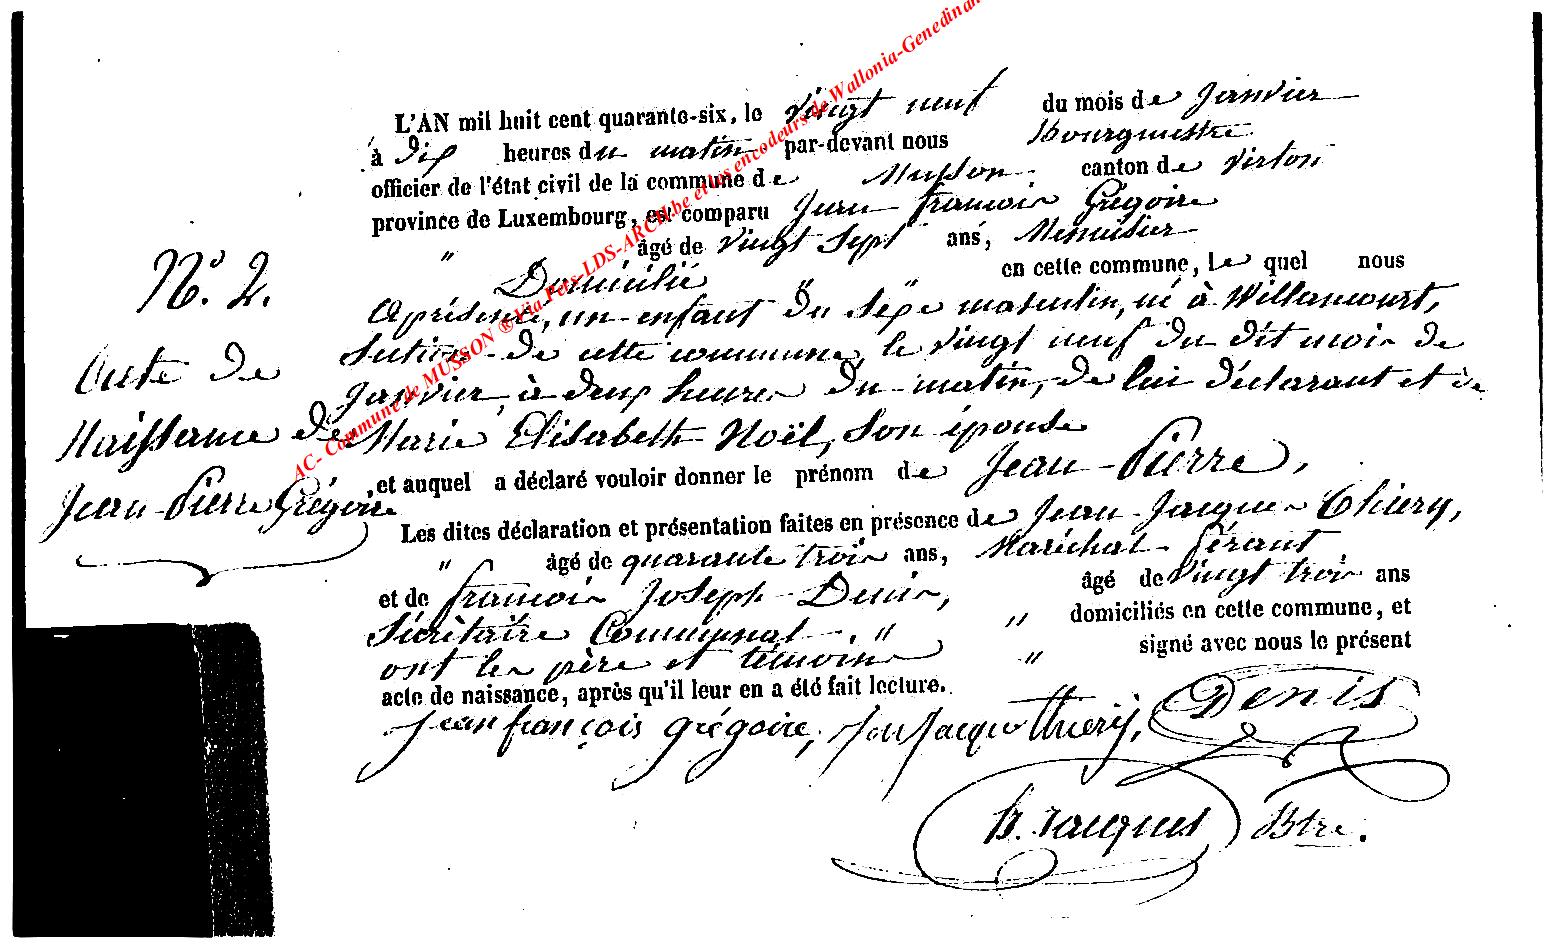 L'AN mil huit cent quarante-six, le vingt neuf du mois de Janvier
à dix heures du matin par-devant nous Bourgmestre
officier de l'état civil de la commune de Musson canton de Virton
province de Luxembourg, est comparu Jean François Grégoire
" âgé de vingt sept ans, Menuisier
Domicilié " " en cette commune, le quel nous
a présenté, un enfant du sexe masculin, né à Willancourt,
Section de cette commune, le vingt neuf du dit mois de
Janvier, à deux heures du matin, de lui déclarant et de
Marie Elisabeth Noël, son épouse
et auquel a déclaré vouloir donner le prénom de Jean-Pierre,
Les dites déclaration et présentation faites en présence de Jean-Jacques Thiery,
" âgé de quarante trois ans, Maréchal-férant,
et de François Joseph Denis, âgé de vingt trois ans
Sécrètaire Communal, " " domiciliés en cette commune, et
ont les père et témoins " signé avec nous le présent
acte de naissance, après qu'il leur en a été fait lecture.
N.° 2.
Acte de
Naissance de
Jean-Pierre Grégoire
jean françois grégoire, Jacque thiery, Denis
Jacques Btre.
AC- Commune de MUSSON ® Via Pets-LDS-ARCH.be et les encodeurs de Wallonia-Genedinan